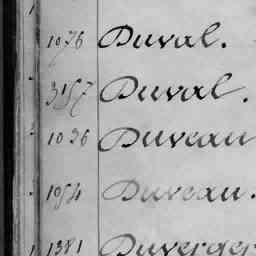 1076 Duval.
3157 Duval.
1036 Duveau
1054 Duveau.
1381 Duverger